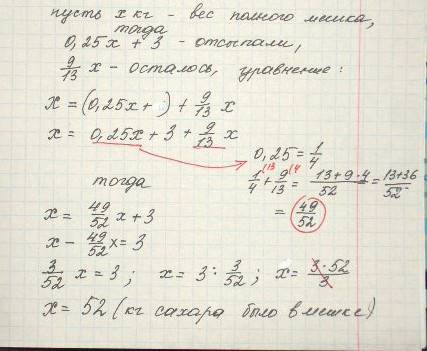 пусть x кг - вес полного мешка,
тогда
0,25x + 3 - отсыпали,
9/13 x - осталось, уравнение:
x = (0,25x + ) + 9/13 x
x = 0,25x + 3 + 9/13 x
0,25 = 1/4
1/4 /13 + 9/13 /4 = 13+9·4/52 = 13+36/52
= 49/52
тогда
x = 49/52 x + 3
x - 49/52 x = 3
3/52 x = 3 ; x = 3 : 3/52 ; x = 3·52/3
x = 52 (кг сахара было в мешке)